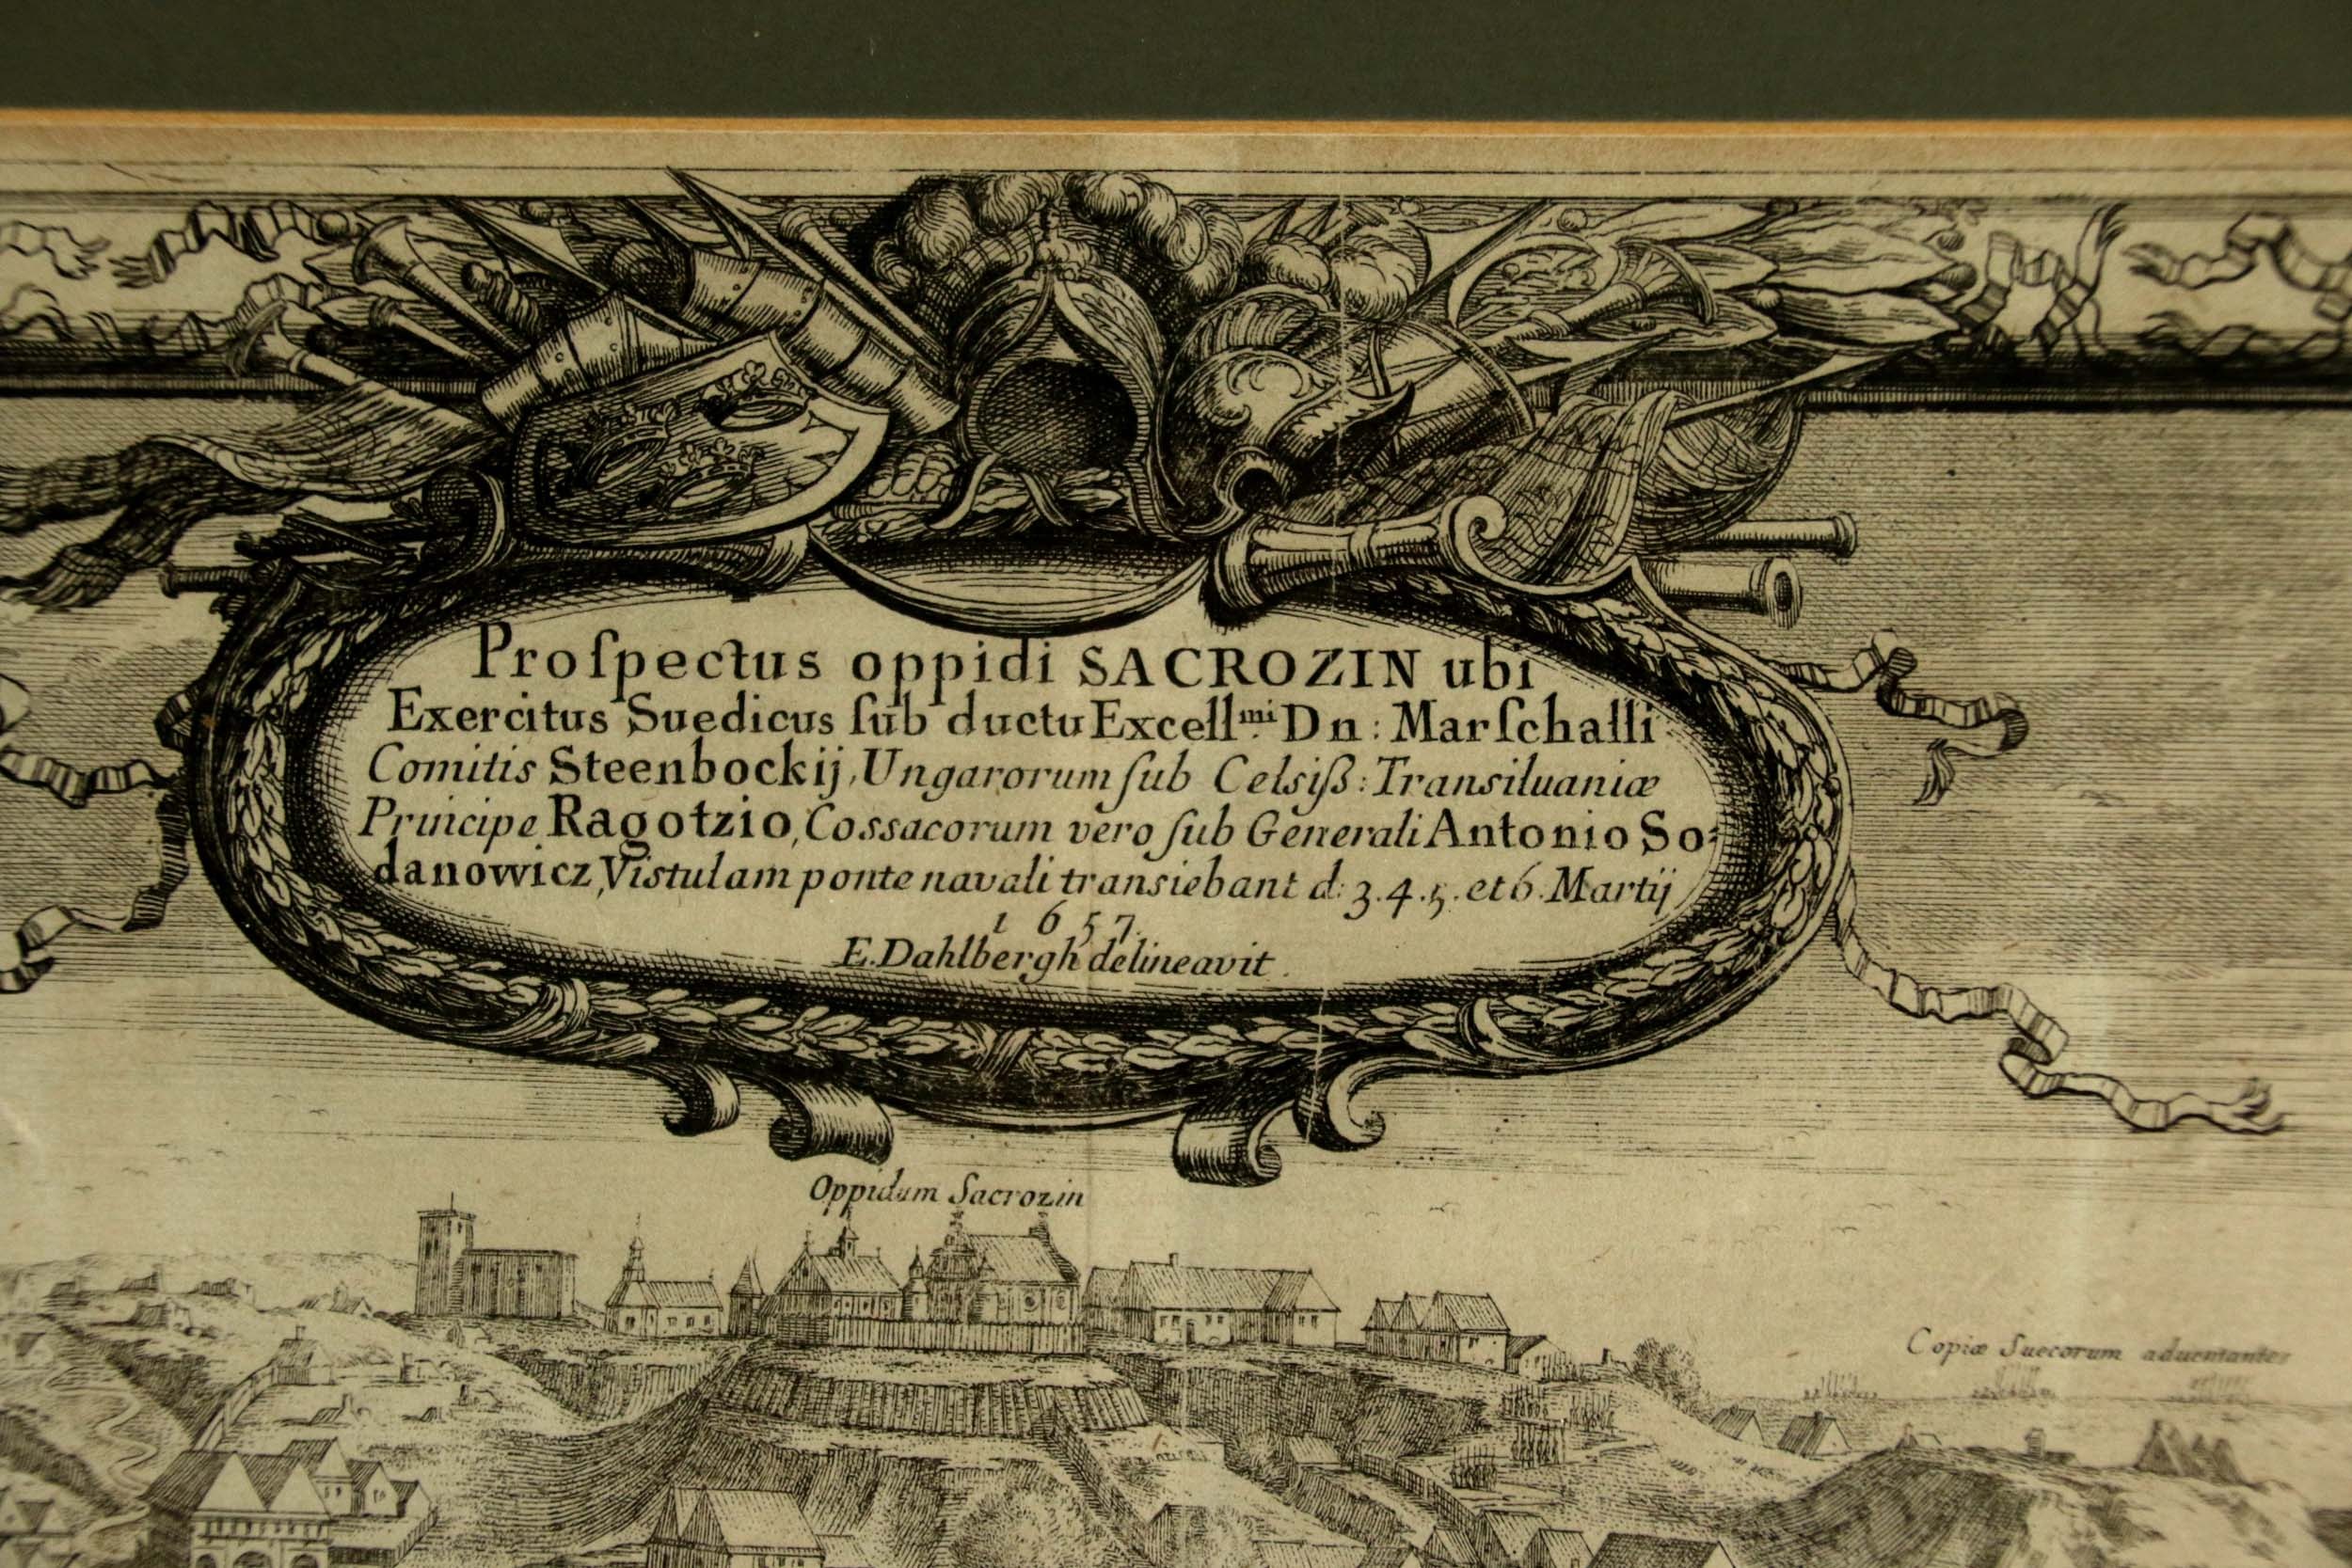 Proſpectus oppidi SACROZIN ubi
Exercitus Suedicus ſub ductu Excellmi: Dn: Marſchalli
Comitis Steenbockij, Ungarorum ſub Celsiß: Transiluaniæ
Principe Ragotzio, Cossacorum vero ſub Generali Antonio So:
danowicz, Vistulam ponte navali transiebant d: 3.4.5. et 6. Martij
1657.
E. Dahlbergh delineavit.
Oppidum Sacrozin
Copiæ Suecorum aduentantes